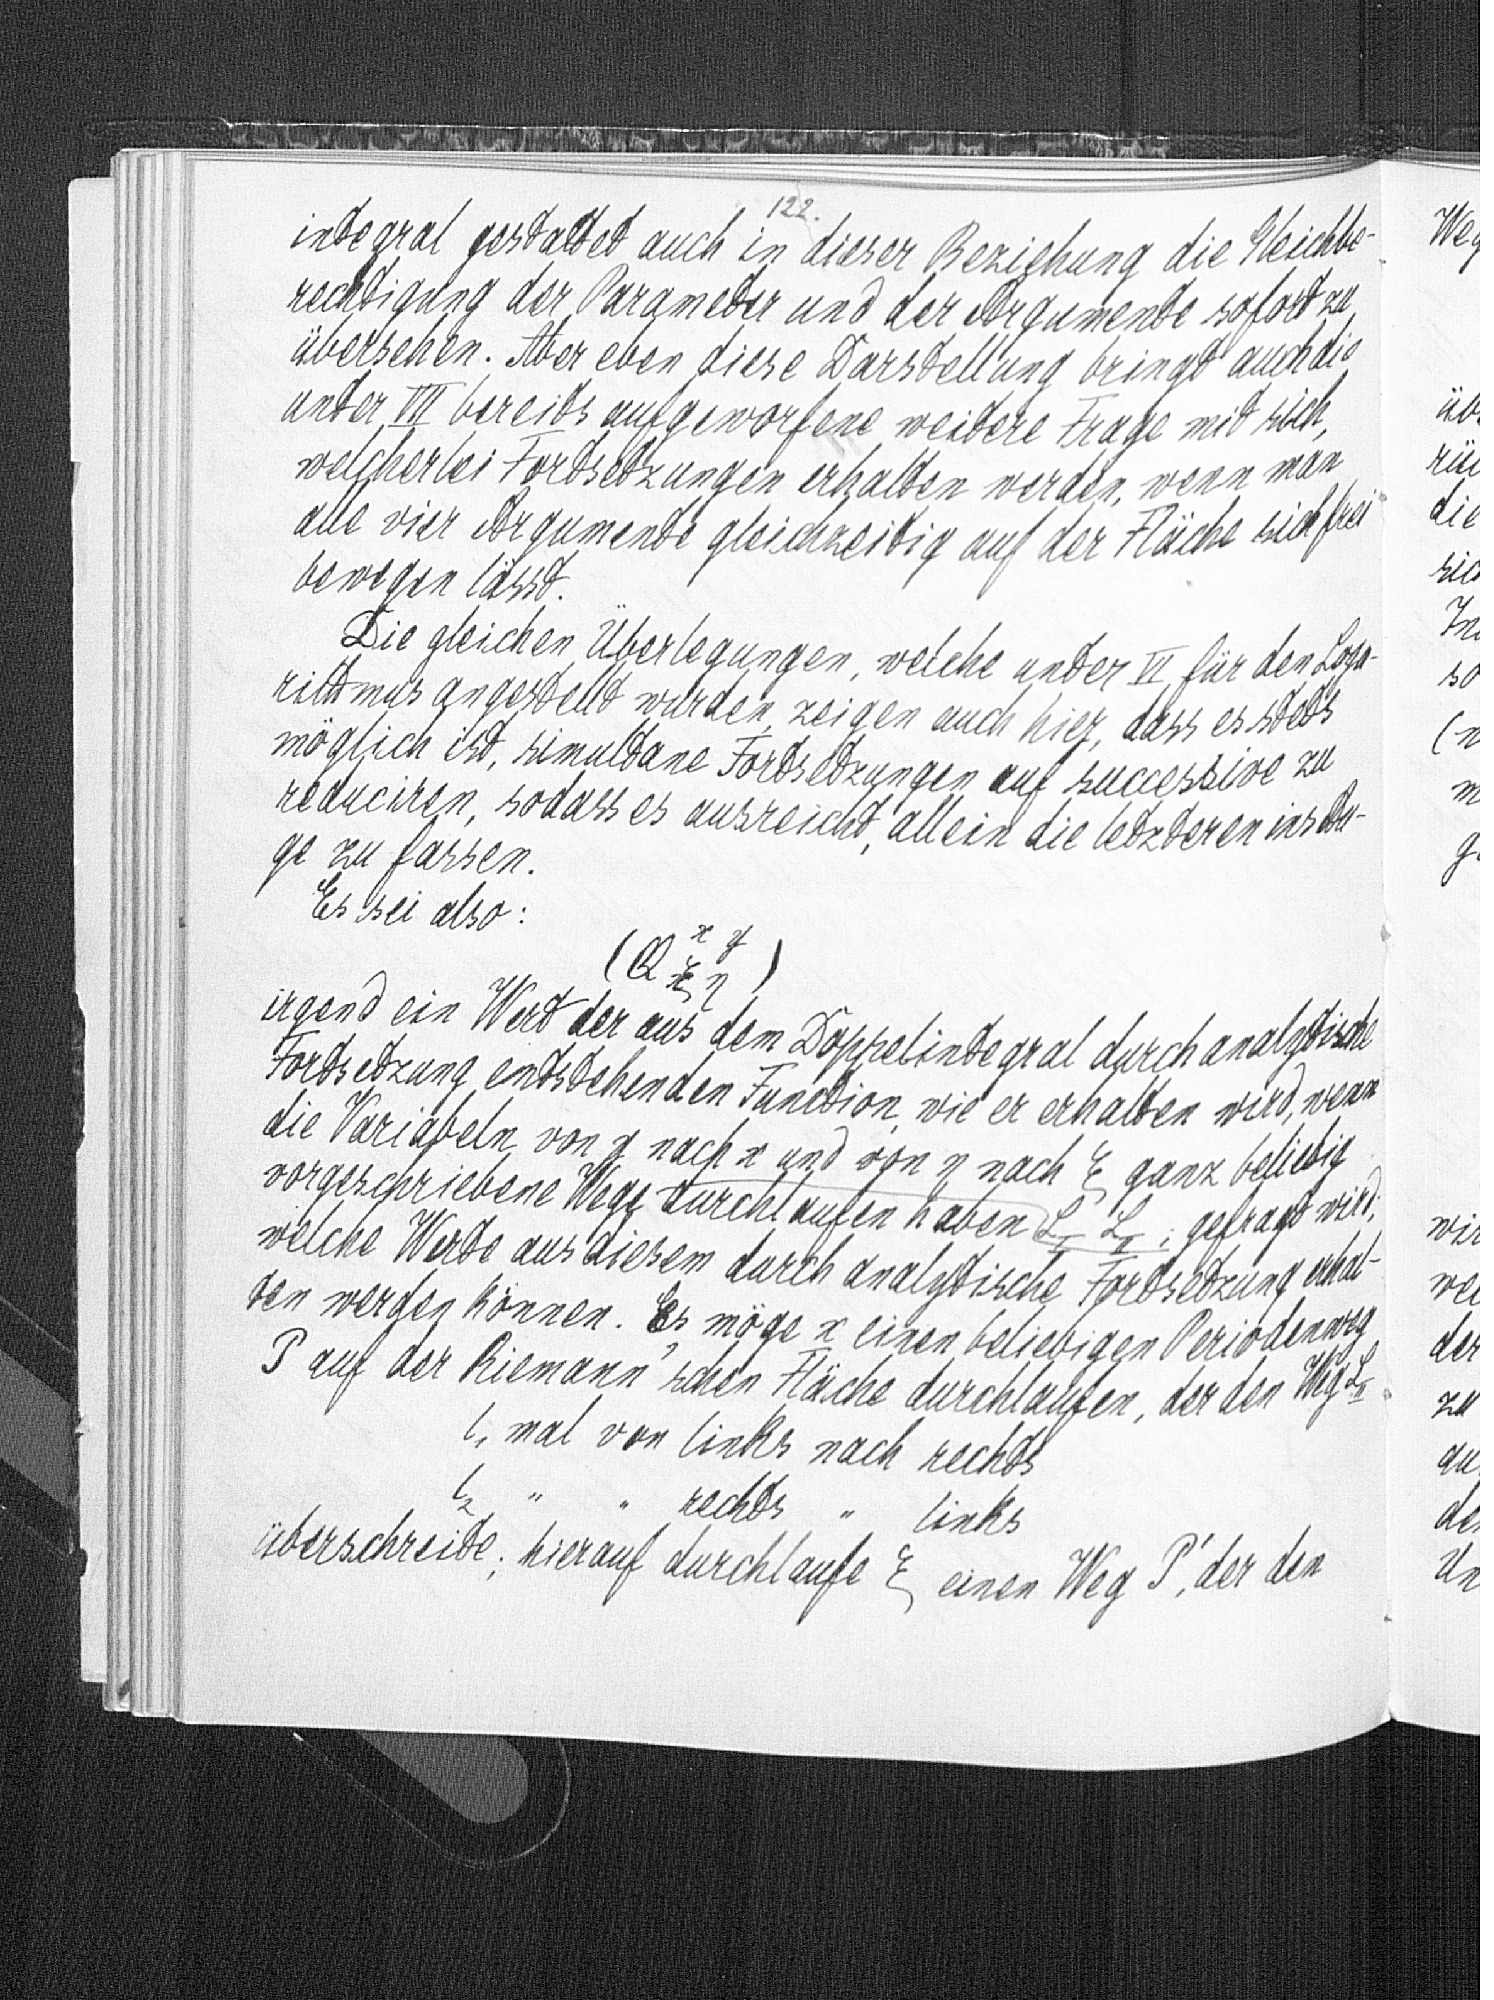 122.
integral gestattet auch in dieser Beziehung die Gleichbe-
rechtigung der Parameter und der Argumente sofort zu
übersehen. Aber eben diese Darstellung bringt auch die
unter VII bereits aufgeworfene weitere Frage mit sich,
welcherlei Fortsetzungen erhalten werden, wenn man
alle vier Argumente gleichzeitig auf der Fläche sich frei
bewegen lässt.
Die gleichen Überlegungen, welche unter VI für den Loga-
rithmus angestellt wurden, zeigen auch hier, dass es stets
möglich ist, simultane Fortsetzungen auf successive zu
reduciren, sodass es ausreicht, allein die letzteren ins Au-
ge zu fassen.
Es sei also:
(Q x y ξ η)
irgend ein Wert der aus dem Doppelintegral durch analytische
Fortsetzung entstehenden Function, wie er erhalten wird, wenn
die Variabeln von y nach x und von η nach ξ ganz beliebig
vorgeschriebene Wege durchlaufen haben L_I L_II; gefragt wird,
welche Werte aus diesem durch analytische Fortsetzung erhal-
ten werden können. Es möge x einen beliebigen Periodenweg
P auf der Riemann'schen Fläche durchlaufen, der den Weg L_II
l₁ mal von links nach rechts
l₂ " " rechts " links
überschreite; hierauf durchlaufe ξ einen Weg P', der den
Weg
die